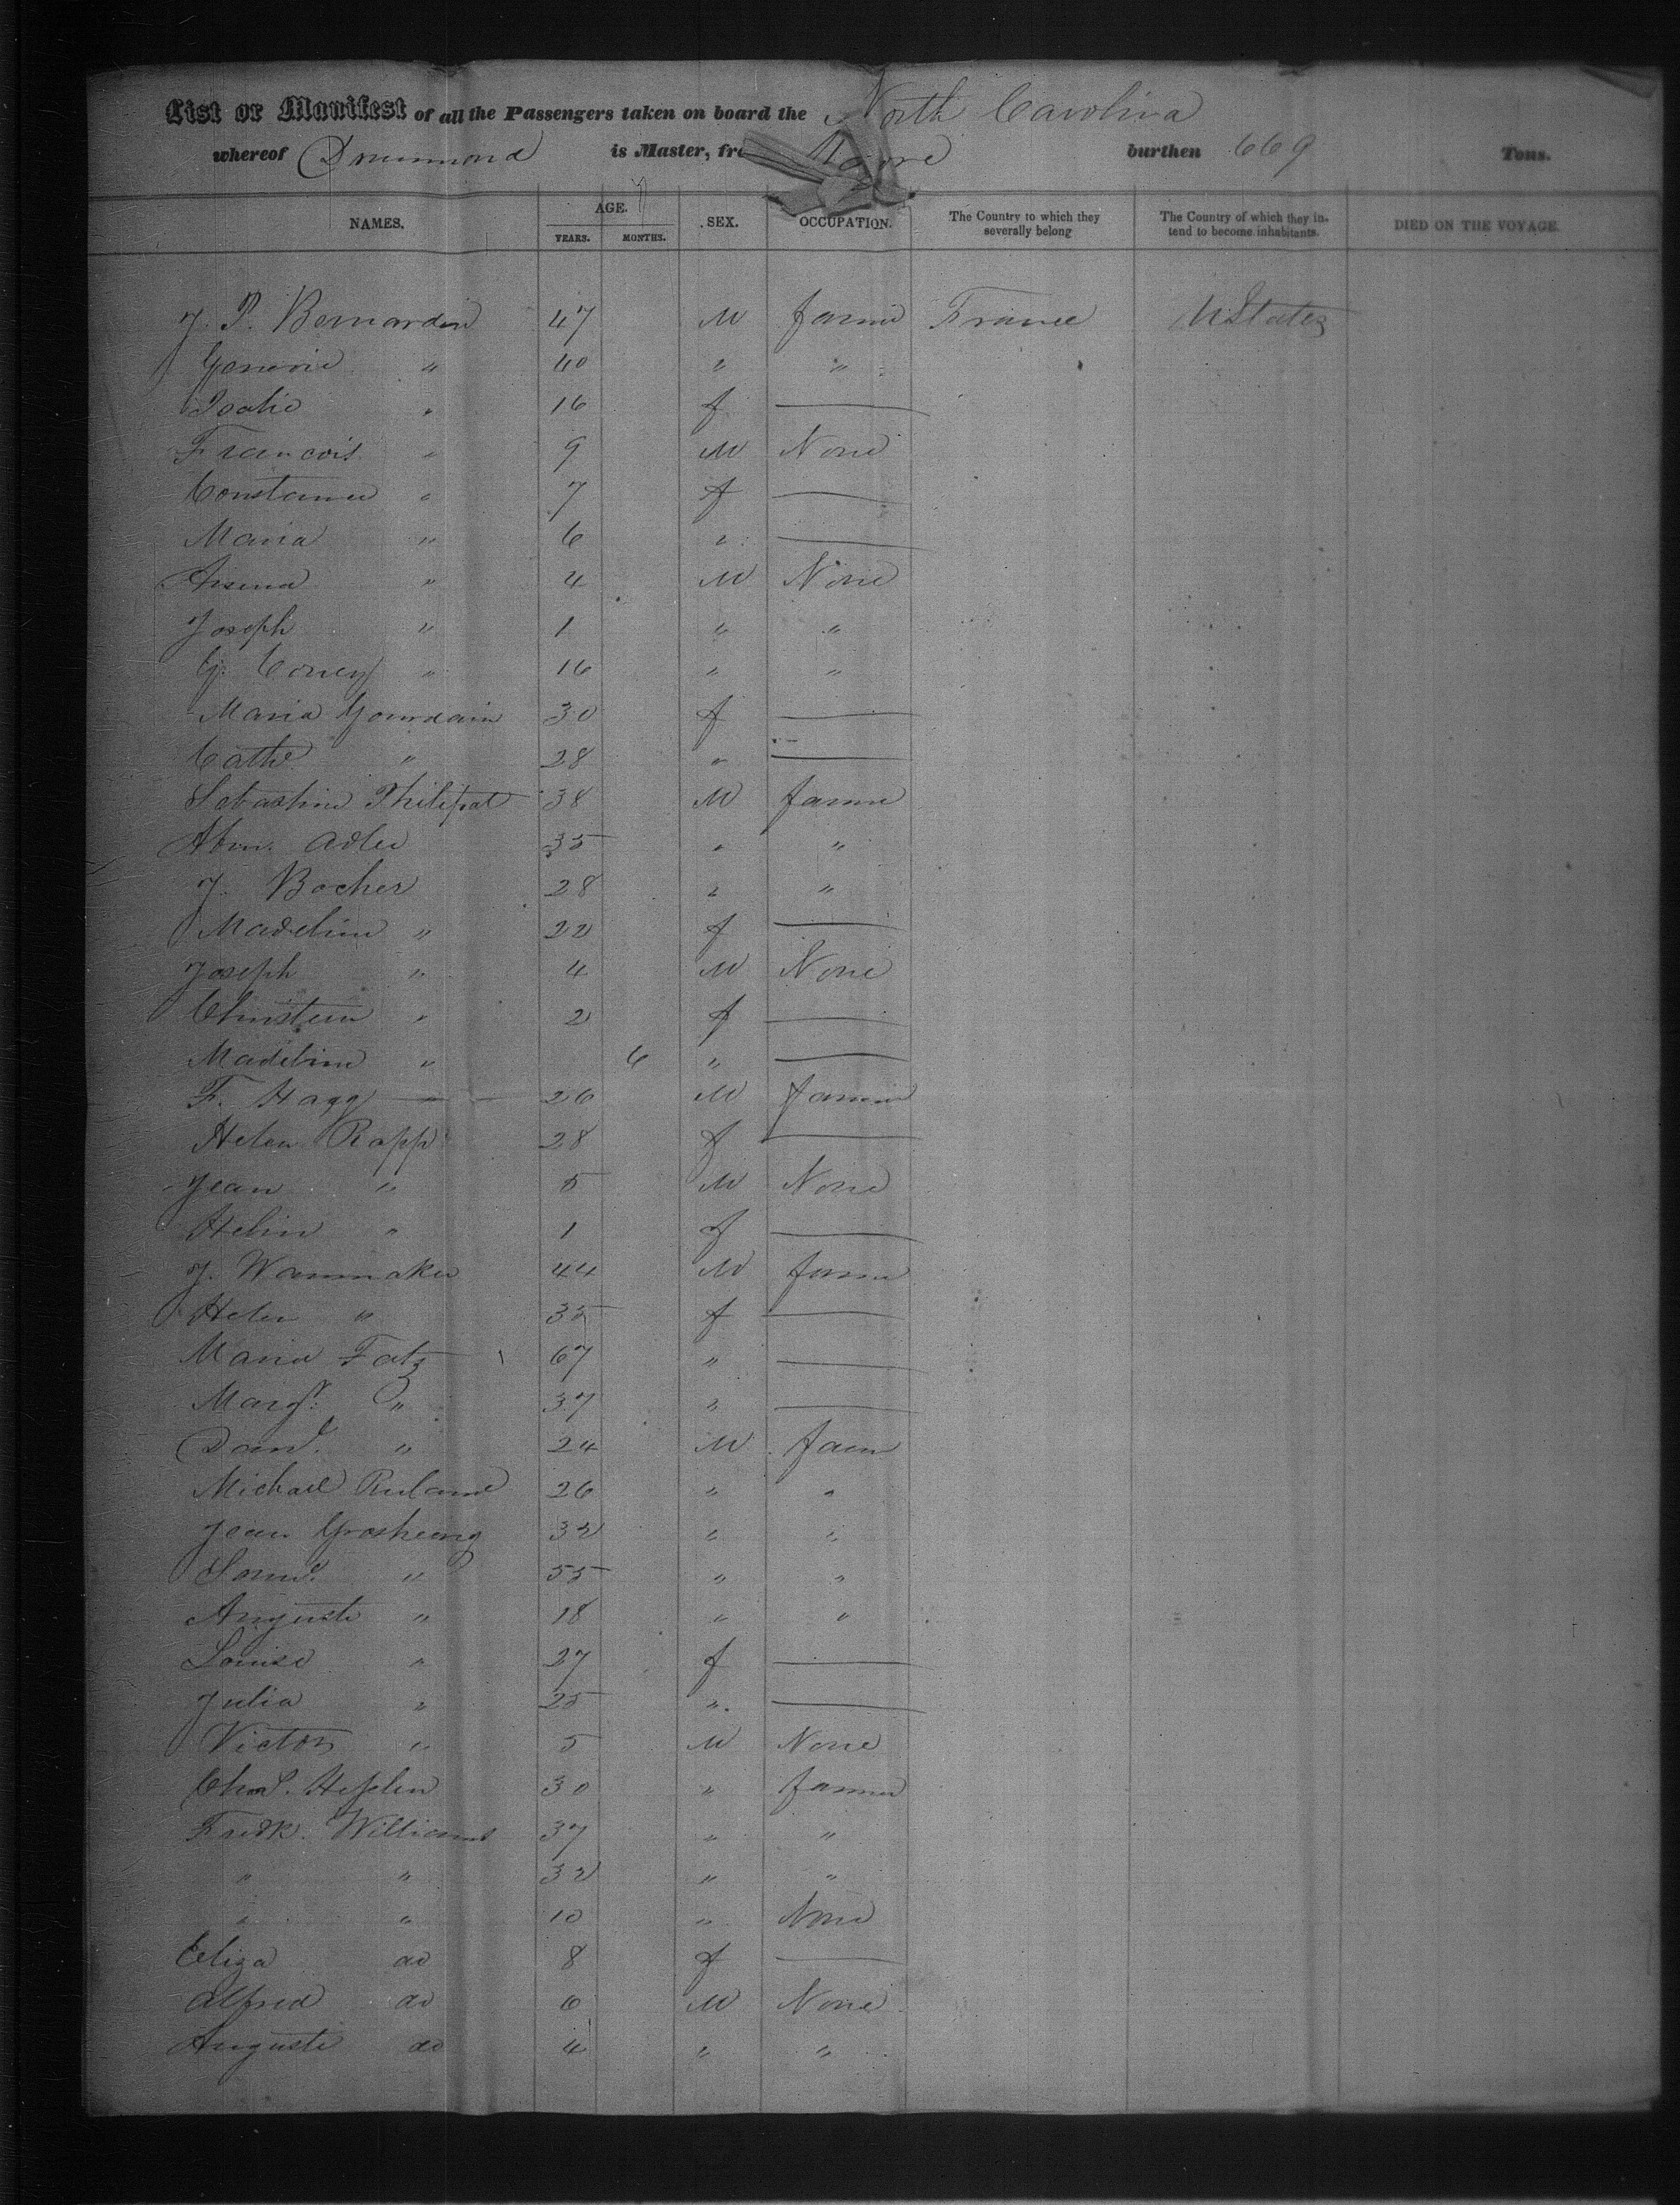 List or Manifest of all the Passengers taken on board the North Carolina
whereof Drummond is Master, from Havre burthen 669 Tons.
NAMES. AGE. YEARS. MONTHS. SEX. OCCUPATION. The Country to which they severally belong The Country of which they intend to become inhabitants. DIED ON THE VOYAGE.
J. P. Bernardin 47 M farmer France U States
Genevie " 40 " "
" 16 f —
Francois " 9 M None
Constance " 7 f —
Maria " 6 " —
" 4 M None
Joseph " 1 " "
G. Coney " 16 " "
Maria Gourdain 30 f —
Cathe " 28 " —
Sebastine Philipot 38 M farmer
Abm. Adler 35 " "
J. Bocher 28 " "
Madeline " 22 f —
Joseph " 4 M None
" 2 f —
Madeline " 6 " —
F. Hagg 26 M farmer
Helen Rapp 28 f —
Jean " 5 M None
Helin " 1 f —
J. Wanmaker 44 M farmer
Helen " 35 f —
Maria Fatz 67 " —
Margt. " 37 " —
Danl. " 24 M farm
Michael 26 " "
Jean 32 " "
" 55 " "
Auguste " 18 " "
Louise " 27 f —
Julia " 25 " —
Victor " 5 M None
Chas. 30 " farmer
Fredk. Williams 37 " "
" " 32 " "
" " 10 " None
Eliza do 8 f —
Alfred do 6 M None
Auguste do 4 " "